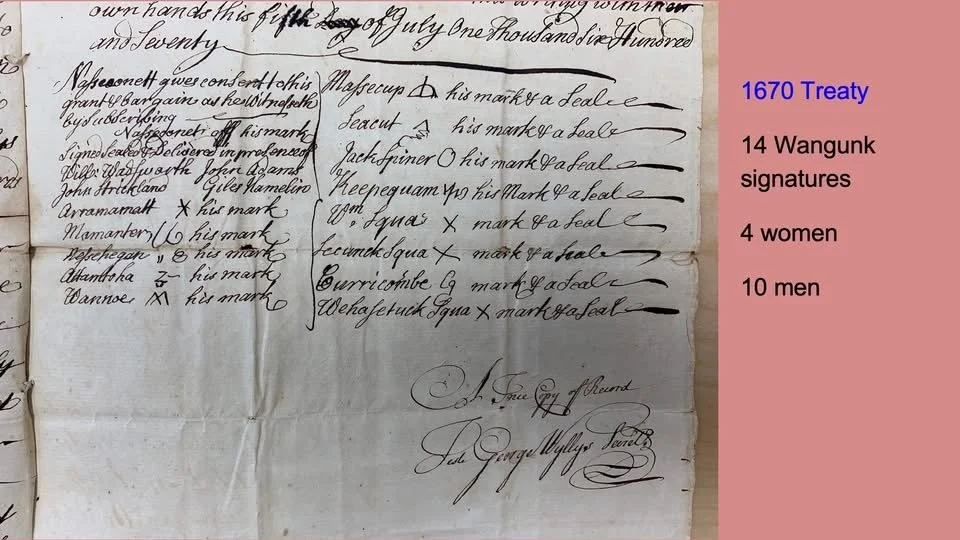 own hands this fifth Day of July One Thousand Six Hundred
and Seventy
Nasseconett gives consent to this
grant & bargain as he Witnesseth
by Subscribing
Nasseconett his mark
Signed Sealed & Delivered in presence of
Wadsworth John Adams
John Strickland Giles Hamelin
Arramamatt X his mark
Mamanter his mark
his mark
Attamtoha his mark
Wannoe his mark
Massecup his mark & a Seal
Seacut his mark & a Seal
Jack Spiner O his mark & a Seal
Keepequam his Mark & a Seal
Wm Squa X mark & a Seal
Secunck Squa X mark & a Seal
Curricombe mark & a Seal
Wehasetuck Squa X mark & a Seal
A True Copy of Record
Test George Wyllys Secret
1670 Treaty
14 Wangunk
signatures
4 women
10 men